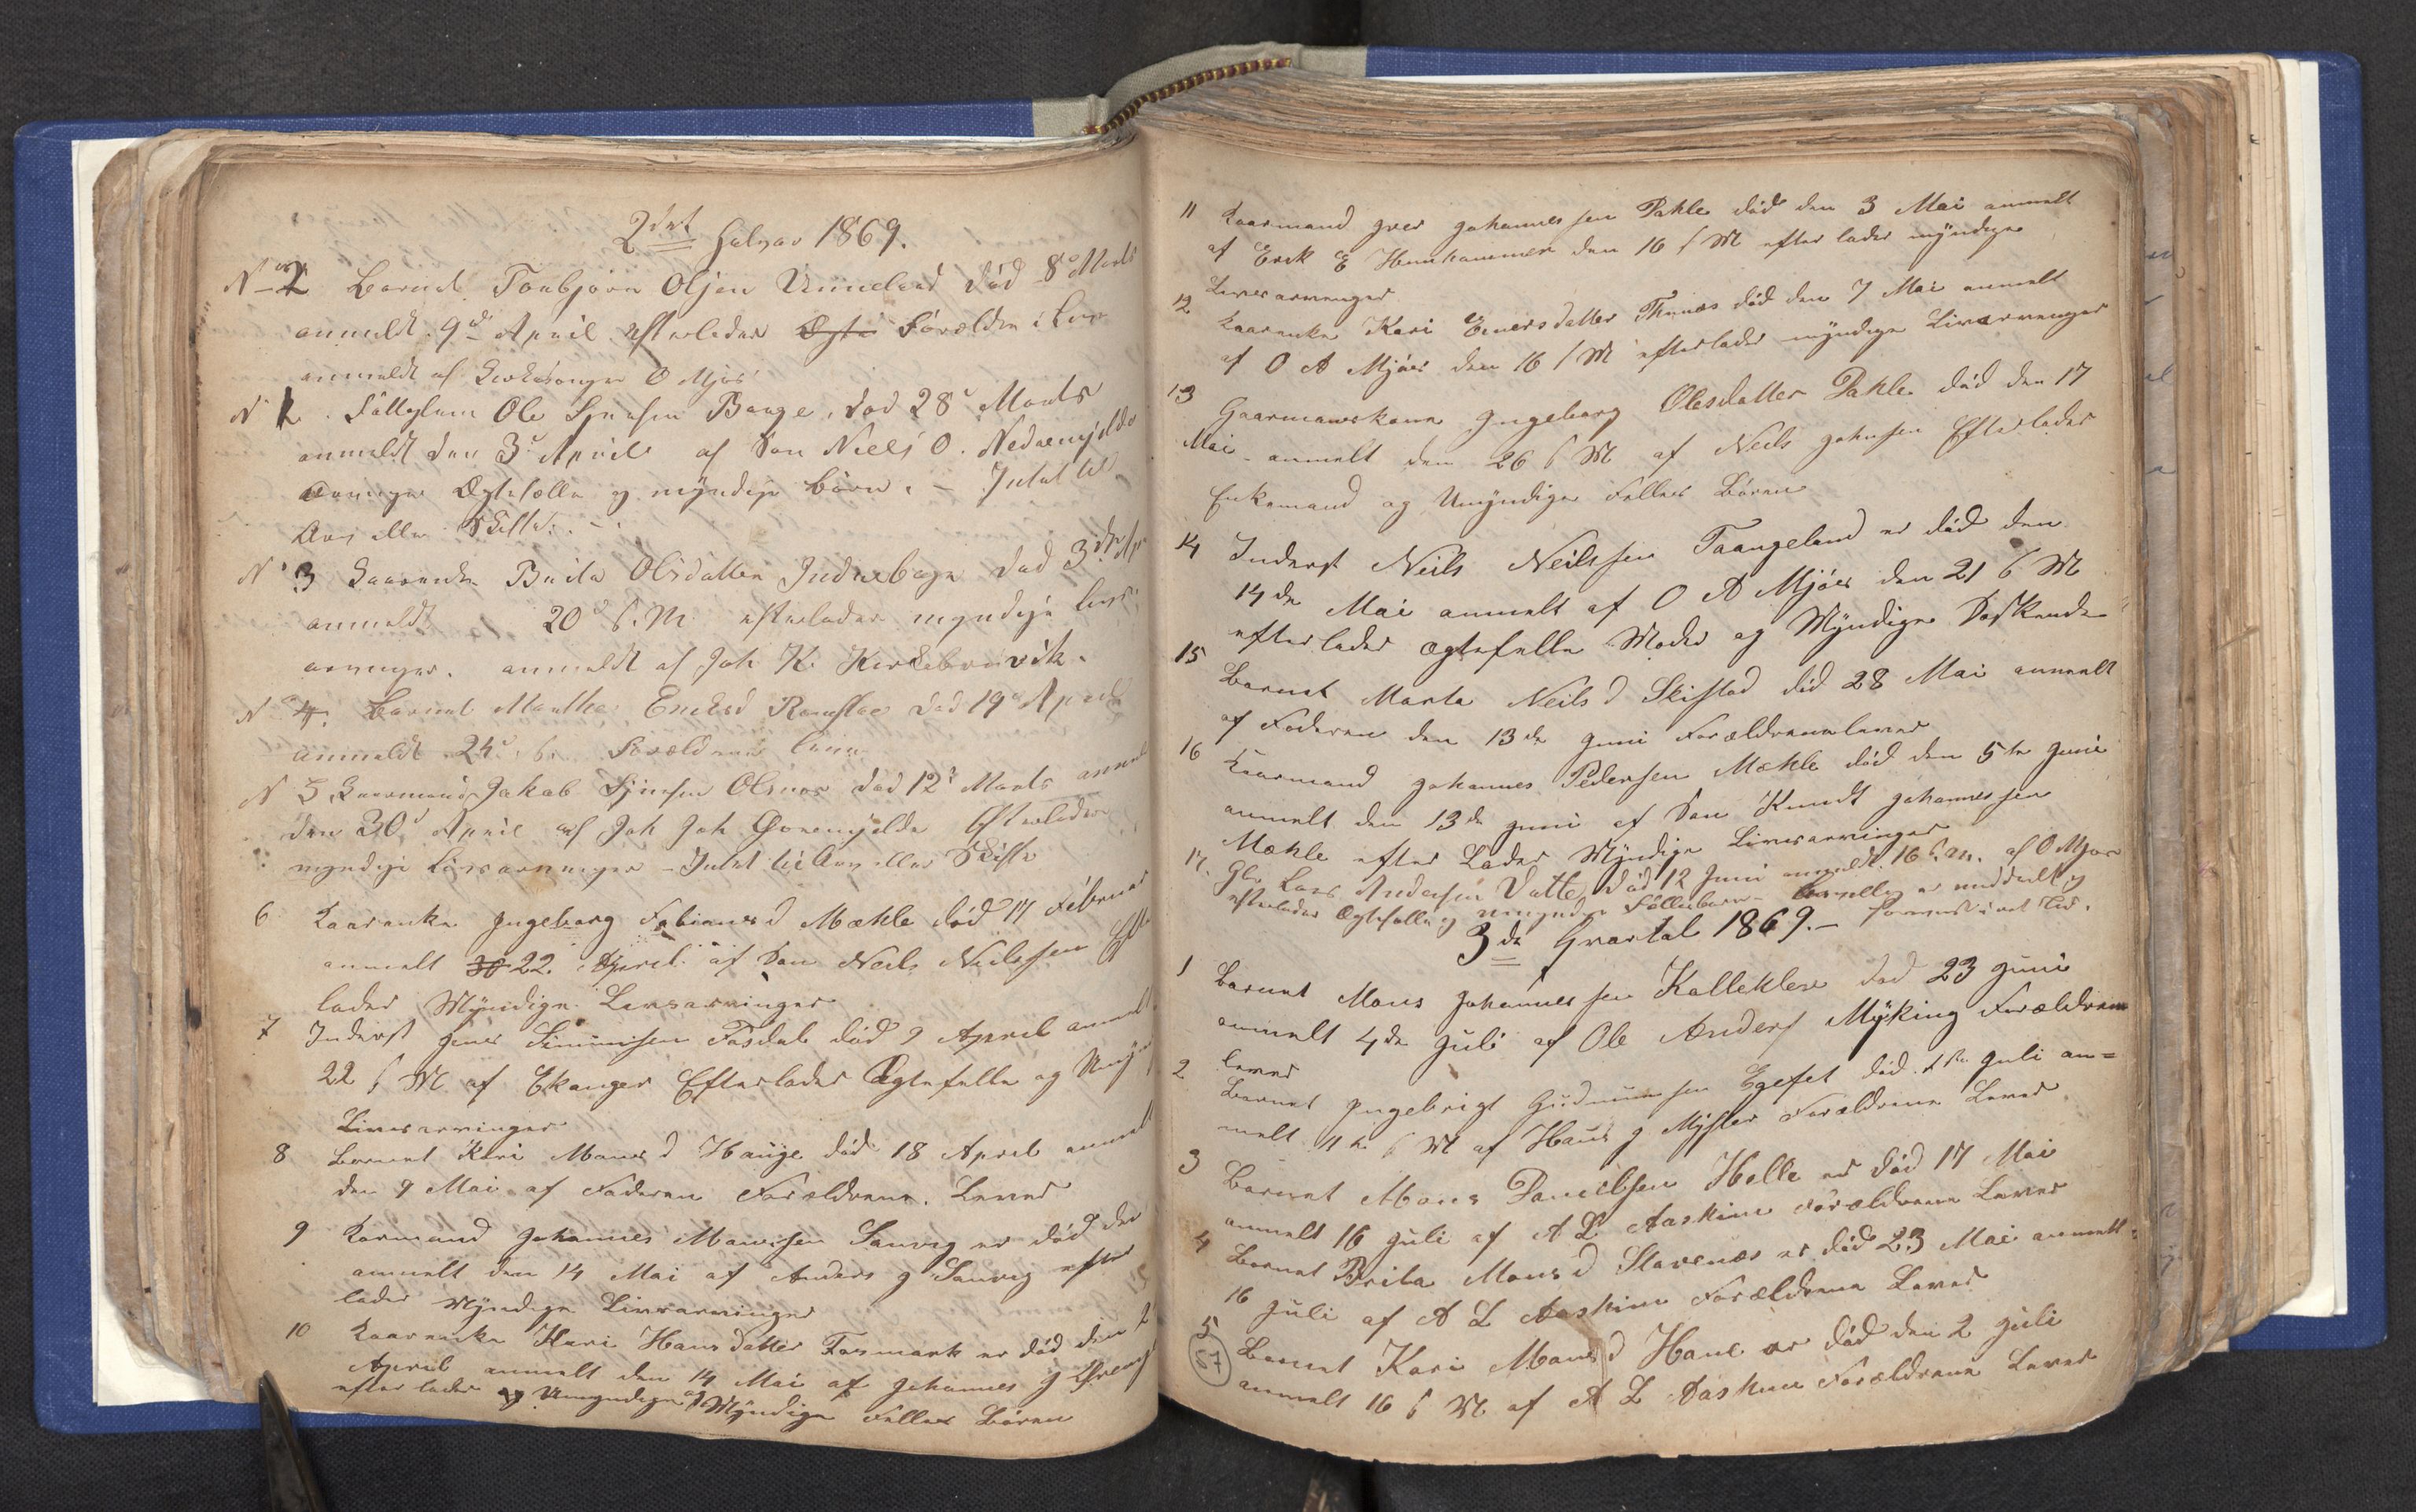 2det Halvaar 1869.
No 2 Barnet Torbjørn Olsen Unneland død 8de Marts
anmeldt 9de April efterlader Ægte Forældre i Live
anmeldt af Kirkesanger O Mjøs
No 2. Føllogkone Ole Hauge, død 28d Marts
anmeldt den 3d April af Søn Niels O. Nedremjelde
arvinger Ægtefælle og myndige børn. - Intet til
Arv eller Skifte.
No 3 Kaarenke Brita Olsdatter Indrebøge død 3de Apr
anmeldt 20d s. M. efterlader myndige Livs
arvinger. anmeldt af Joh K. Kirkebruvik.
No 4. Barnet Marthe Ericksd død 19d April
anmeldt 24d s. Forældrene leve
N 5 Kaarmand Jakob Olsnes død 12d Marts anmel
den 30d April af Joh Joh Øvremjelde Efterlader
myndige Livsarvinger - Intet til Arv eller Skifte
6 Kaarenke Ingeborg Fabiansd Mæhle død 14 Februar
anmelt 30 22. April af Søn Neils Neilssen Efter
lader Myndige Livsarvinger
7 Inderst Jens Simmisen Fosdal død 9 April anmelt
22 s M af Ekanger Efterlader Ægtefelle og Umyn
Livesarvinger
8 Barnet Kari Monsd Hauge død 18 April anmelt
den 9 Mai af Faderen Forældrene Lever
9 Karmand Johannes Monsen Sanvig er død den
anmelt den 14 Mai af Anders J Sanvig efter
lader Myndige Livsarvinger
10 Kaarenke Kari Hansdatter Fosmark er død den 2
April anmelt den 14 Mai af Johannes J
efterlader og Umyndige og Myndige Felles Børen
11 Kaarmand Iver Johannessen Dahle død den 3 Mai anmelt
af Erik E Hernhammer den 16 s M efterlader myndige
Livesarvenger
12 Kaarenke Kari Einersdatter Thunæs død den 7 Mai anmelt
af O A Mjøes den 16 s M efterlader myndige Livarvenger
13 Gaarmanskone Ingeborg Olesdatter Dahle død den 17
Mai anmelt den 26 s M af Neils Johnsen Efterlader
Enkemand og Umyndige Felles Børen
14 Inderst Neils Neilssen Taangeland er død den
14de Mai anmelt af O A Mjøes den 21 s M
efterlader ægtefelle Moder og Myndige Søskende
15 Barnet Marta Neilsd Skistad død 28 Mai anmelt
af Faderen den 13de Juni Forældrene lever
16 Kaarmand Johannes Pedersen Mæhle død den 5te Juni
anmelt den 13de Juni af Søn Knudt Johannessen
Mæhle efter Lader Myndige Livesarvinger
17. Gbr Lars Andersen Vatle død 12 Juni anmeldt 16 s. m. af O Mjøs
efterlader Ægtefælle og umyndige Fællesbørn - er meddelt
3de Qvartal 1869. -
1 Barnet Mons Johannessen Kallekleve død 23 Juni
anmelt 4de Juli af Ole Anders Myking Forældrene
lever
2 Barnet Ingebrigt Gudmunsen Egeset død 1ste Juli an=
melt 11te s M af Hans J Myster Forældrene Lever
3 Barnet Mons Danielsen Helle er død 17 Mai
anmelt 16 Juli af A L Aaskim Forældrene Lever
4 Barnet Brita Monsd Stavenæs er død 23 Mai anmelt
16 Juli af A L Aaskim Forældrene Lever
5 Barnet Kari Monsd Hane er død den 2 Juli
67
anmelt 16 s M af A L Aaskim Forældrene Lever